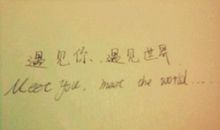 遇见你、遇见世界
Meet You, meet the world....